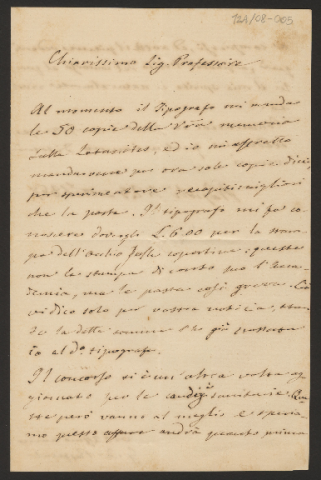 124/08-005
Chiarissimo Sig. Professore
Al momento il Tipografo mi manda
le 50 copie della Sua memoria
sulla ed io mi affretto
mandarvene per ora sole copie dieci
per recapiti migliori
che la posta. Il tipografo mi fa co
noscere dovergli L. 6.00 per la stam
pa dell'occhio sulla copertina: questa
non la stampa di conto suo l'Acca
demia, ma le passa così grezze. Ciò
vi dico solo per vostra notizia,
te la detta somma l'ho già pagata
io al do. tipografo.
Il concorso si è un'altra volta ag
giornato per le condizioni sanitarie.
però vanno al meglio e speria
mo questo affare andrà quanto prima